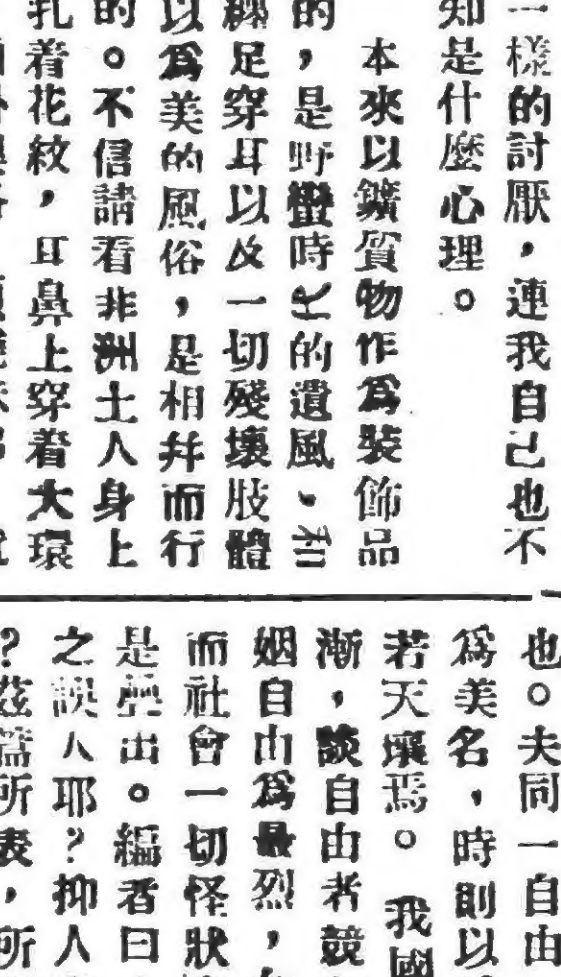 一樣的討厭，連我自己也不
知是什麼心理。
本來以鑛質物作爲裝飾品
的，是野蠻時代的遺風、和
纏足穿耳以及一切殘壞肢體
以爲美的風俗，是相幷而行
的。不信請看非洲土人身上
着花紋，耳鼻上穿着大環
也。夫同一自由
爲美名，時則以
若天壤焉。我國
漸，談自由者競
姻自由爲最烈，
而社會一切怪狀
是疊出。編者曰
之誤人耶？抑人
？茲篇所表，所